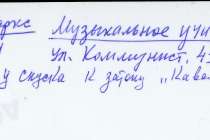 аркс Музыкальное учи
ул. Коммунист. 43
у спуска к затону „Кава